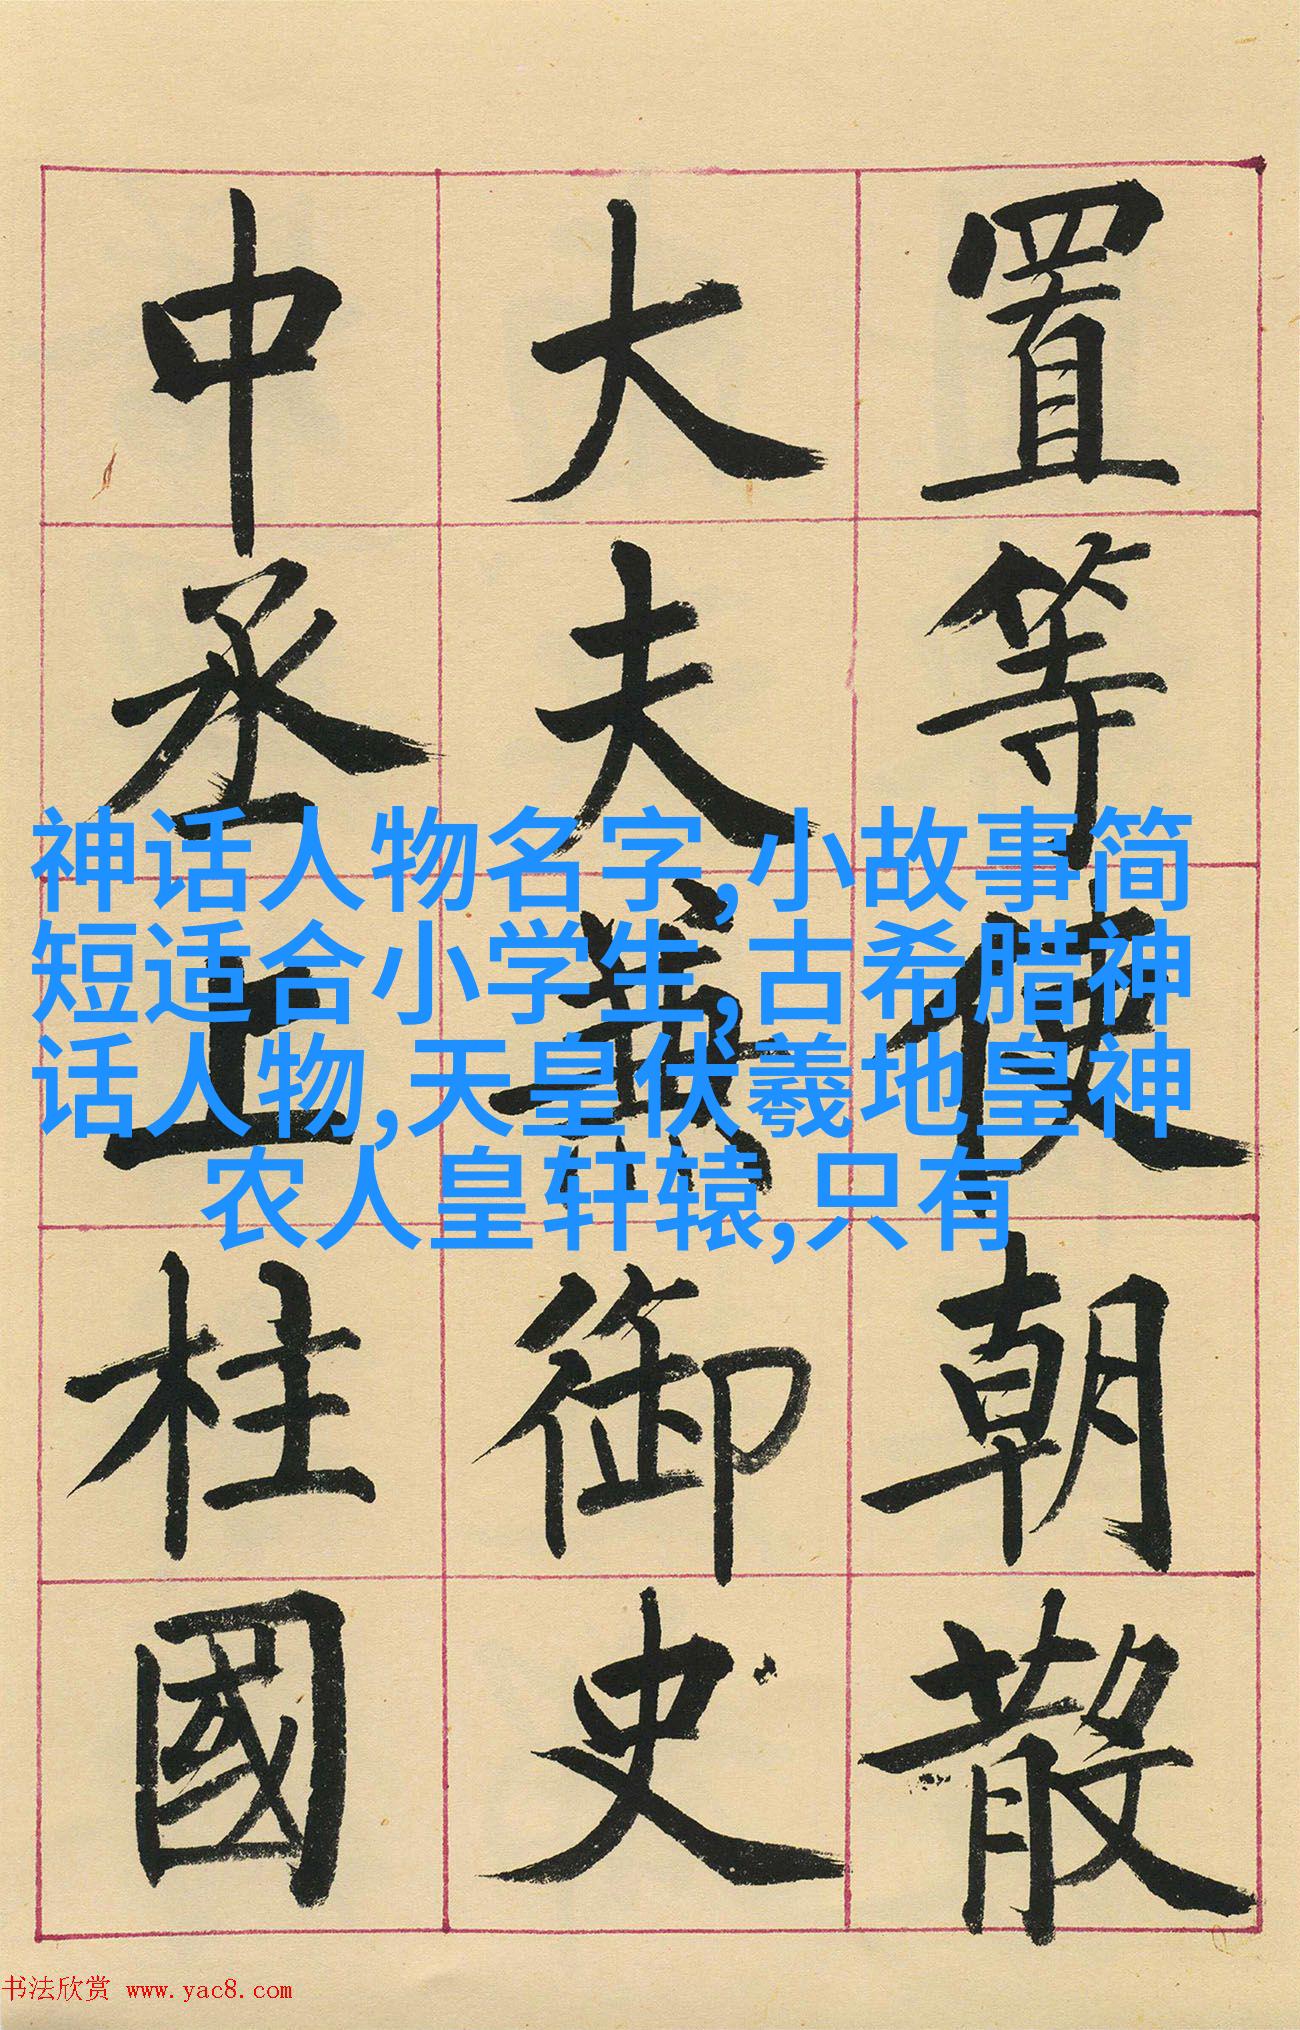 置等使朝散
大夫兼御史
中丞上柱國
神话人物名字,小故事简
短适合小学生,古希腊神
话人物,天皇伏羲地皇神
农人皇轩辕,只有
书法欣赏 www.yac8.com